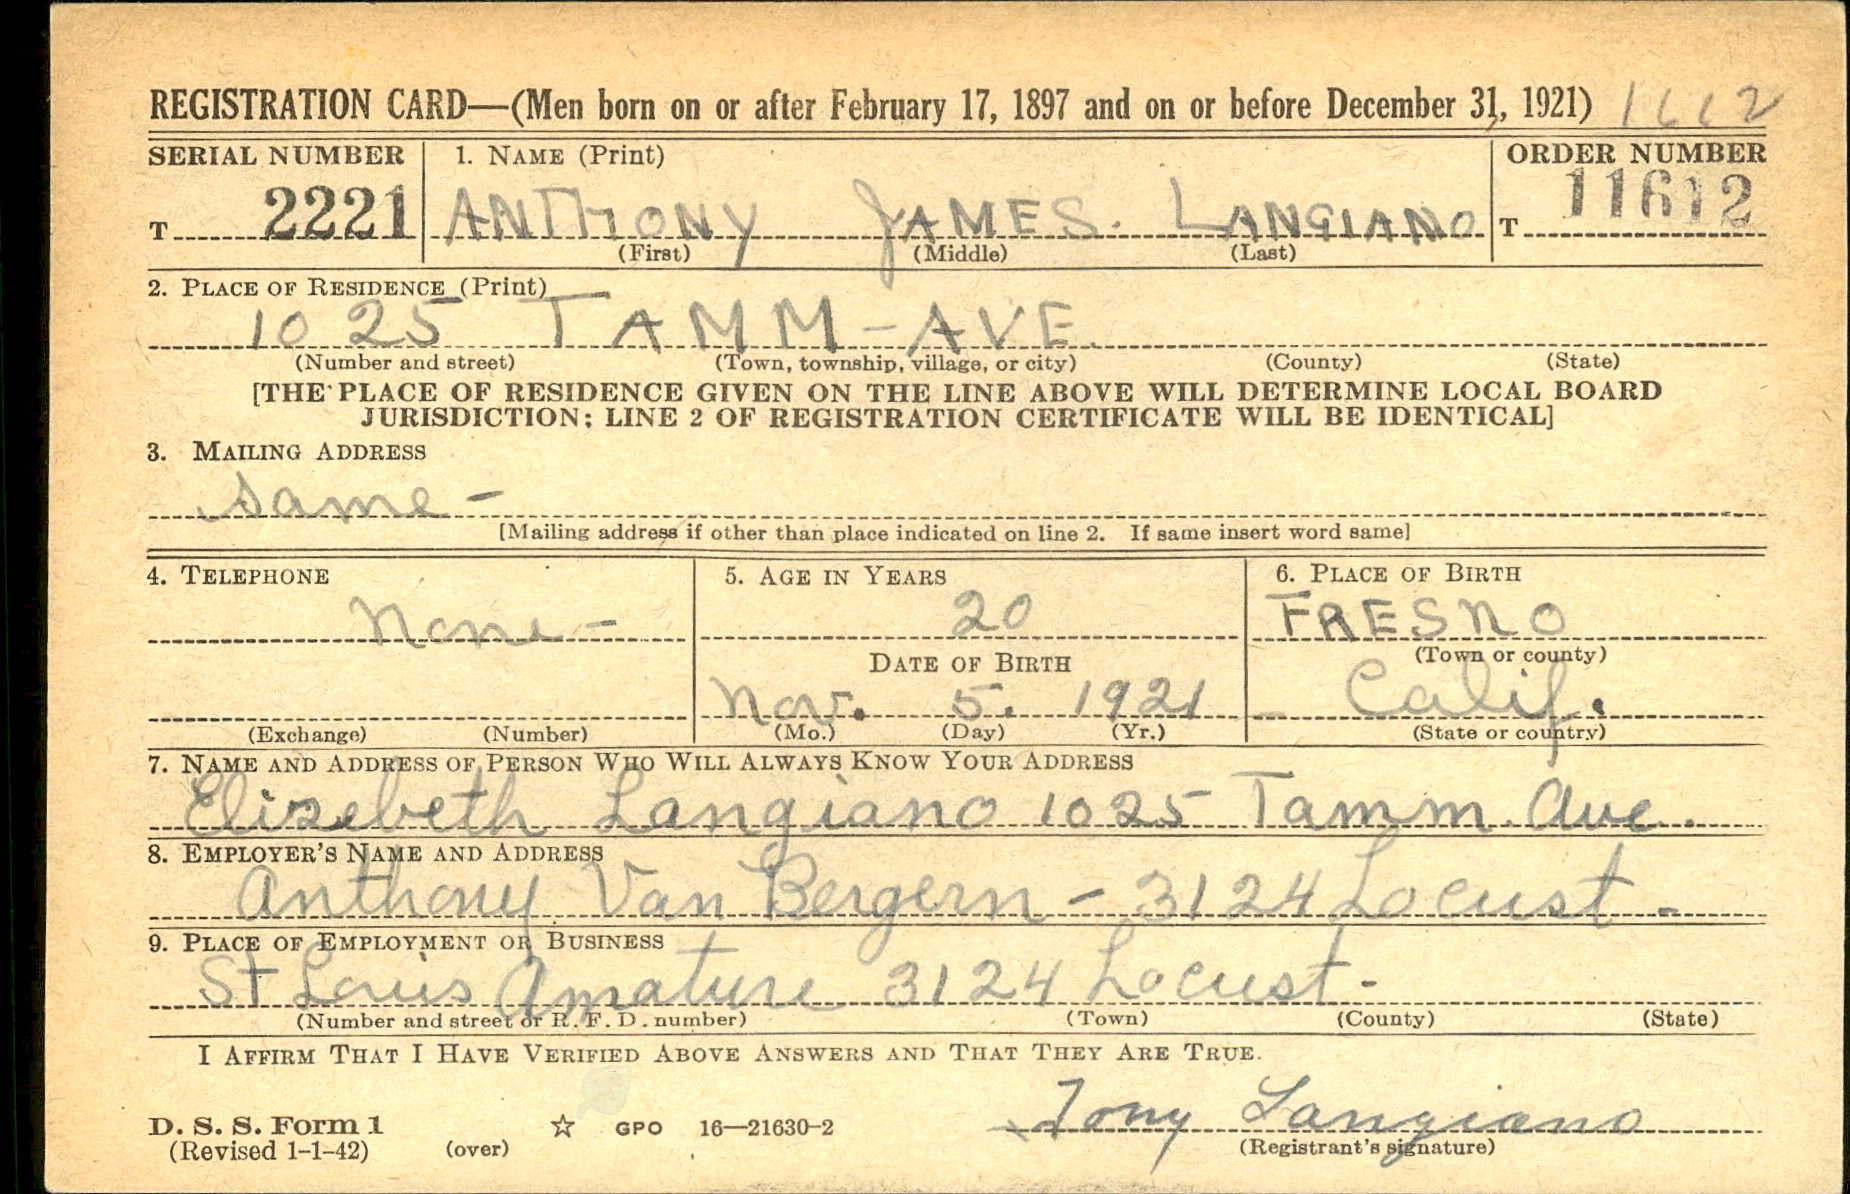 REGISTRATION CARD—(Men born on or after February 17, 1897 and on or before December 31, 1921) 1612
SERIAL NUMBER 1. NAME (Print) ORDER NUMBER
T 2221 ANTHONY JAMES. LANGIANO T 11612
(First) (Middle) (Last)
2. PLACE OF RESIDENCE (Print)
1025 TAMM-AVE.
(Number and street) (Town, township, village, or city) (County) (State)
[THE PLACE OF RESIDENCE GIVEN ON THE LINE ABOVE WILL DETERMINE LOCAL BOARD
JURISDICTION; LINE 2 OF REGISTRATION CERTIFICATE WILL BE IDENTICAL]
3. MAILING ADDRESS
Same -
[Mailing address if other than place indicated on line 2. If same insert word same]
4. TELEPHONE 5. AGE IN YEARS 6. PLACE OF BIRTH
None - 20 FRESNO
(Town or county)
DATE OF BIRTH
Nov. 5. 1921 Calif.
(Exchange) (Number) (Mo.) (Day) (Yr.) (State or country)
7. NAME AND ADDRESS OF PERSON WHO WILL ALWAYS KNOW YOUR ADDRESS
Elizebeth Langiano 1025 Tamm. Ave.
8. EMPLOYER'S NAME AND ADDRESS
Anthony Van Bergern - 3124 Locust -
9. PLACE OF EMPLOYMENT OR BUSINESS
St Louis Amature 3124 Locust -
(Number and street or R. F. D. number) (Town) (County) (State)
I AFFIRM THAT I HAVE VERIFIED ABOVE ANSWERS AND THAT THEY ARE TRUE.
Tony Langiano
D. S. S. Form 1 ☆ GPO 16—21630-2
(Revised 1-1-42) (over) (Registrant's signature)